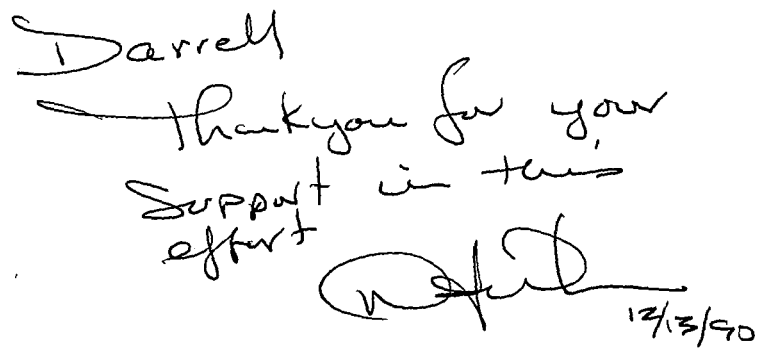 Darrell
Thankyou for your
support in this
effort
12/13/90